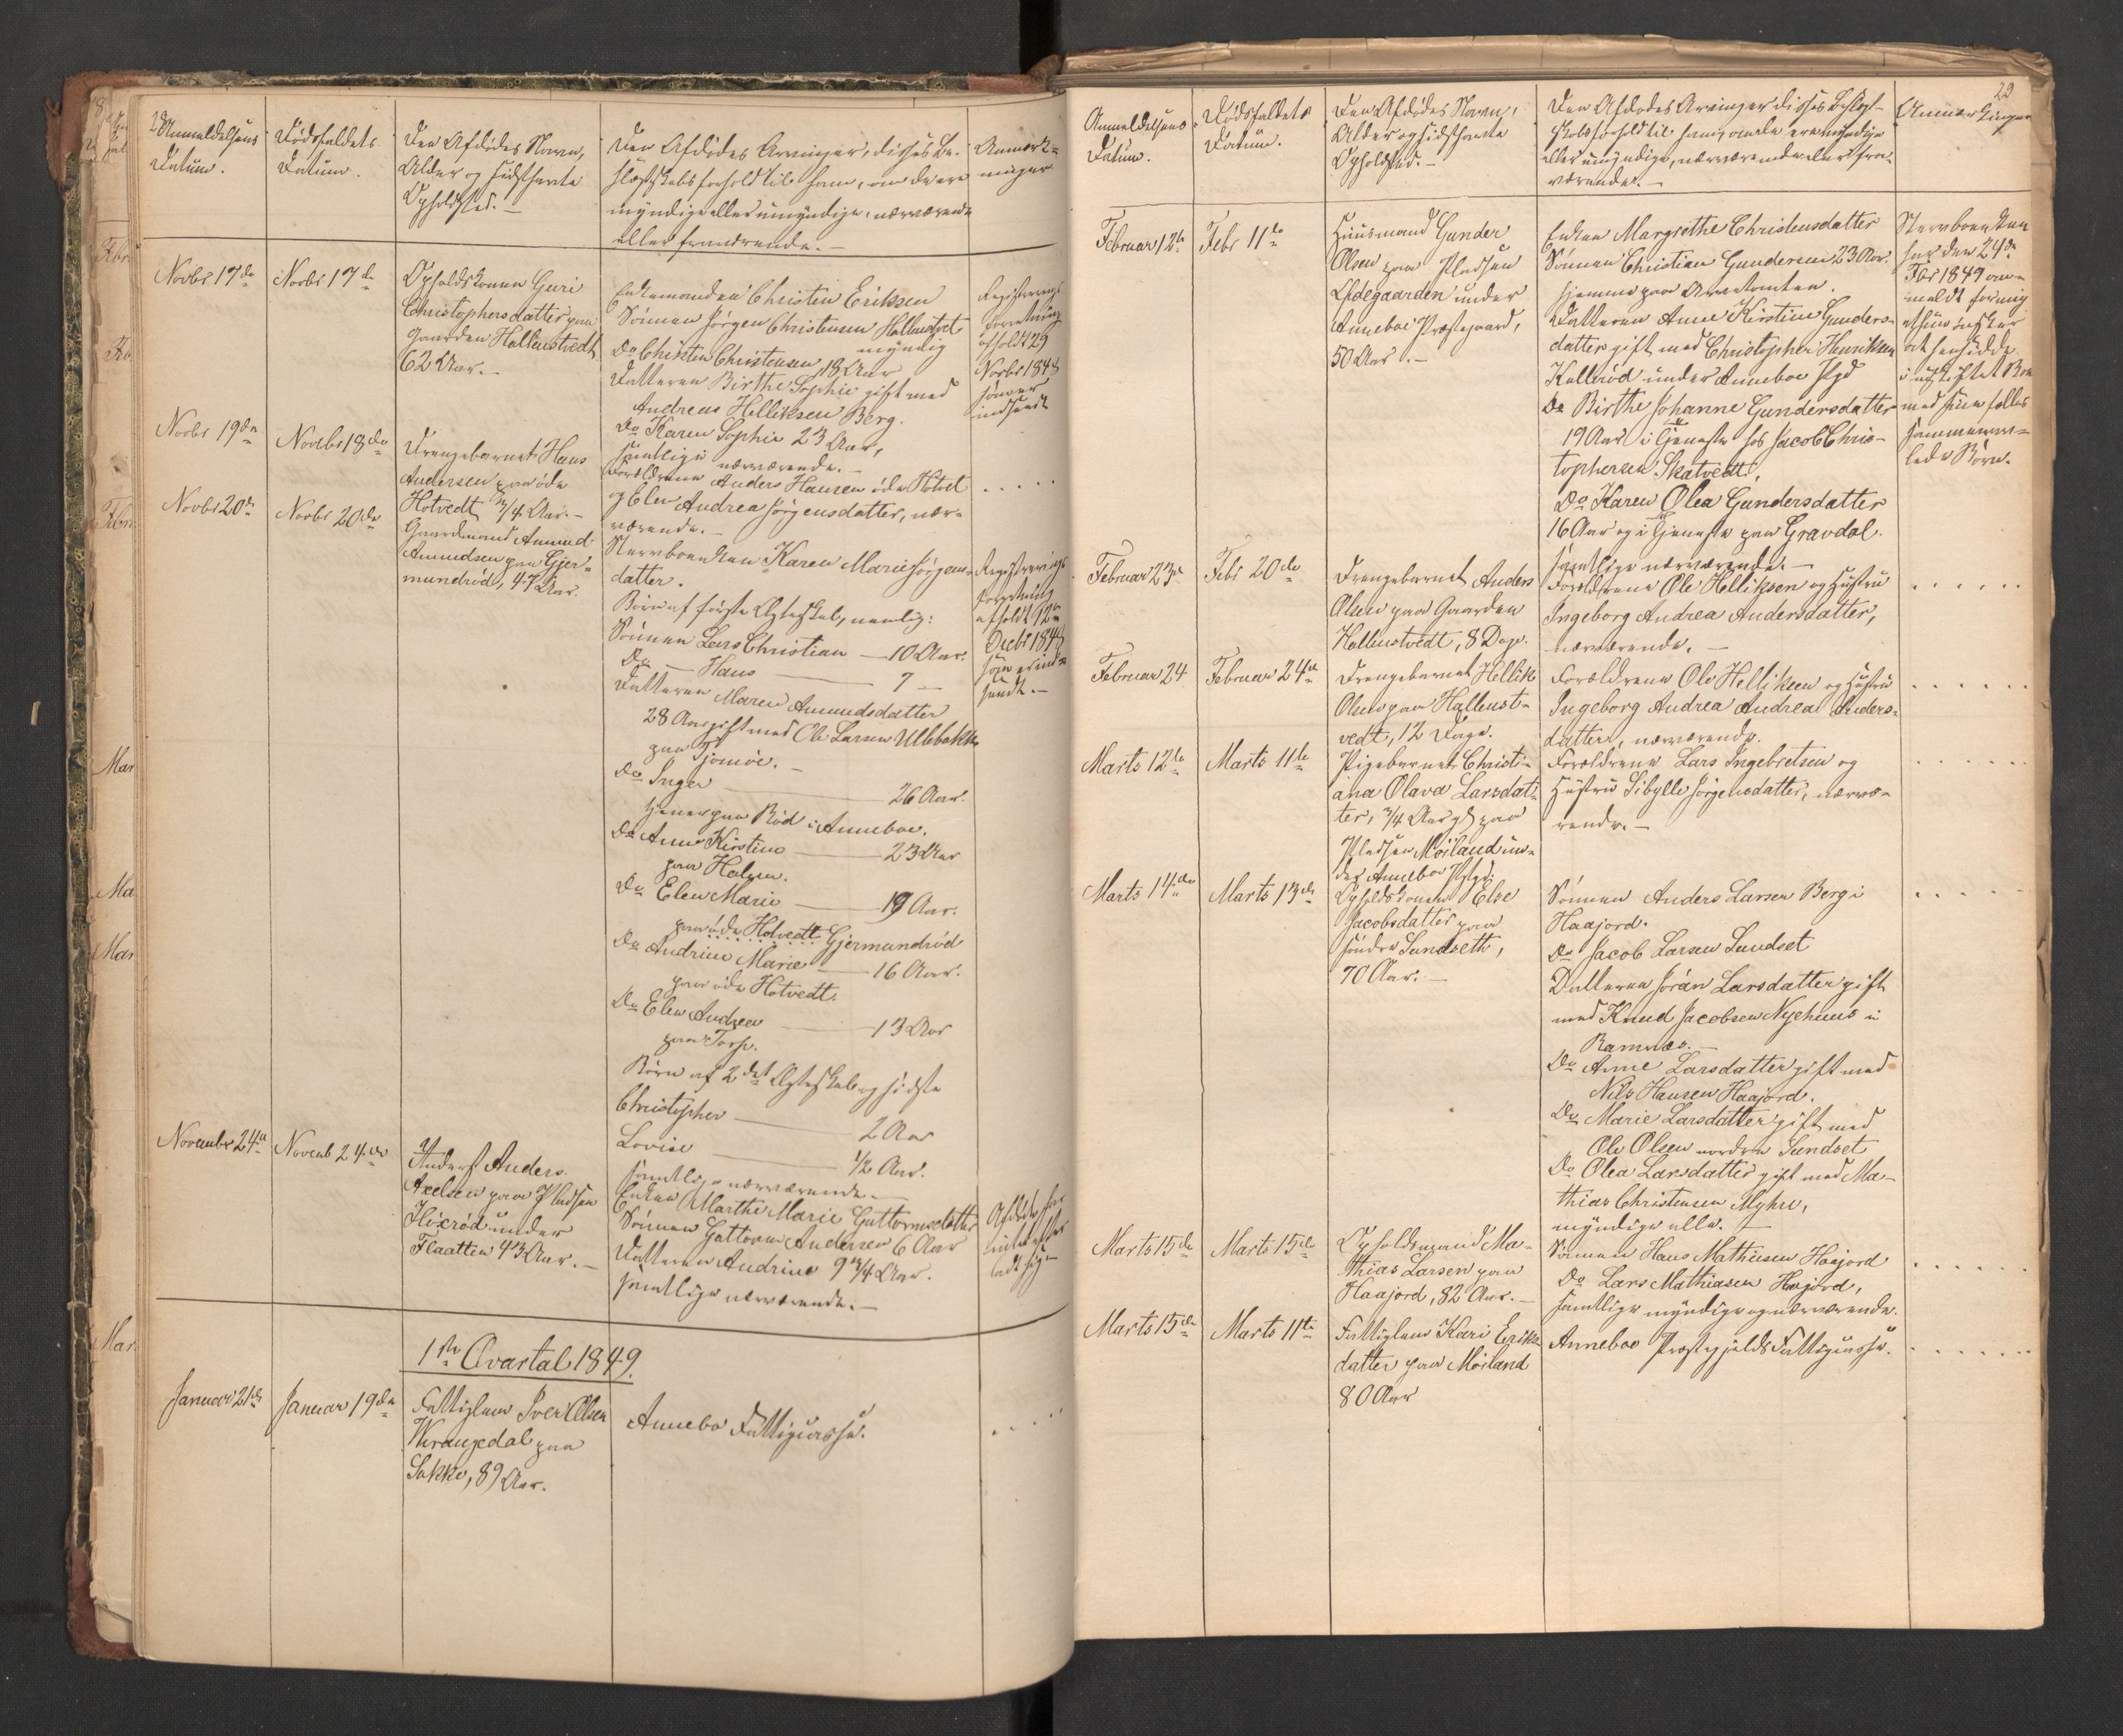 28
Anmeldelsens
Datum.
Dødsfaldets
Datum.
Den Afdødes Navn,
Alder og sidsthavte
Opholdsted. —
Den Afdødes Arvinger, disses Be-
slægtskabsforhold til ham, om de ere
myndige eller umyndige, nærværende
eller fraværende. —
Anmærk-
ninger
Novbr 17de
Novbr 17de
Opholdskonen Guri
Christophersdatter paa
Gaarden Hallenstvedt
62 Aar. —
Enkemanden Christen Eriksen
Sønnen Jørgen Christensen Hallenstvet
myndig
Do Christen Christensen, 18 Aar
Datteren Birthe Sophie gift med
Andreas Helliksen Berg.
Do Karen Sophie 23 Aar,
samtlige nærværende. —
Registrerings
Forretning
afholdt 29
Novbr 1848
som er
indsendt
Novbr 19de
Novbr 18de
Drengebarnet Hans
Andersen paa øde
Hotvedt 3/4 Aar. —
Forældrene Anders Hansen øde Hotvet
og Elen Andrea Jørgensdatter, nær-
værende. —
. . . . .
Novbr 20de
Novbr 20de
Gaardmand Amund
Amundsen paa Gjer-
mundrød, 47 Aar.
Stervboenken Karen Marie Jørgens-
datter.
Børn af første Ægteskab, nemlig:
Sønnen Lars Christian — 10 Aar.
Do — Hans — 7 —
Datteren Maren Amundsdatter
28 Aar gift med Ole Larsen Ulebakke
paa Tjømöe. —
Do Inger — 26 Aar.
tjener paa Rød i Anneboe.
Do Anne Kirstine — 23 Aar
paa Holmen.
Do Elen Marie — 19 Aar.
paa øde Hotvedt Gjermundrød
Do Andrine Marie — 16 Aar.
paa øde Hotvedt.
Do Elen Andrea — 13 Aar
paa Torp.
Børn af 2det Ægteskab og sidste
Christopher — 2 Aar
Lovise — 1/2 Aar.
samtlige nærværende. —
Registrerings
Forretning
afholdt 12te
Decbr 1848
som er ind-
sendt. —
November 24de
Novemb 24de
Inderst Anders
Axelsen paa Pladsen
Höxröd under
Flaatten 43 Aar. —
Enken Marthe Marie Guttormsdatter
Sønnen Guttorm Andersen 6 Aar
Datteren Andrine 9 3/4 Aar.
samtlige nærværende. —
Afdøde har
intet efter-
ladt sig
1ste Qvartal 1849.
Januar 21de
Januar 19de
Fattiglem Iver Olsen
Wrangedal paa
Sakke, 89 Aar.
Annebo Fattigcasse.
. . . .
29
Anmeldelsens
Datum.
Dødsfaldets
Datum.
Den Afdødes Navn,
Alder og sidsthavte
Opholdsted. —
Den Afdødes Arvinger disses Beslægt-
skabsforhold til ham, om de ere myndige
eller umyndige, nærværende eller fra-
værende. —
Anmærkninger
Februar 12te
Febr 11te
Huusmand Gunder
Olsen paa Pladsen
Ødegaarden under
Anneboe Præstegaard,
50 Aar. —
Enken Margrethe Christensdatter
Sønnen Christian Gundersen 23 Aar.
hjemme paa Arvetomten.
Datteren Anne Kirstine Gunders-
datter gift med Christopher Henriksen
Kullerød under Anneboe Pgd
Do Birthe Johanne Gundersdatter
19 Aar i Tjeneste hos Jacob Chris-
tophersen Skatvedt,
Do Karen Olea Gundersdatter
16 Aar og i Tjeneste paa Gravdal.
samtlige nærværende. —
Stervboenken
har den 24de
Fbr 1849 an-
meldt for mig
at hun ønsker
at hensidde
i uskiftet Boe
med sine fælles
sammenav-
lede Børn.
Februar 23de
Febr 20de
Drengebarnet Anders
Olsen paa Gaarden
Hallenstvedt, 8 Dage.
Forældrene Ole Helliksen og Hustru
Ingeborg Andrea Andersdatter,
nærværende. —
. . . . . .
Februar 24
Februar 24de
Drengebarnet Hellik
Olsen paa Hallenst-
vedt, 12 Dage.
Forældrene Ole Helliksen og Hustru
Ingeborg Andrea Andrea Anders-
datter, nærværende.
. . . . . .
Marts 12te
Marts 11te
Pigebarnet Christi-
ana Olava Larsdat-
ter, 3/4 Aar gl paa
Pladsen Möiland un-
der Anneboe Pstgd.
Forældrene Lars Ingebretsen og
Hustru Sibylle Jørgensdatter, nærvæ-
rende. —
. . . . . .
Marts 14de
Marts 13de
Opholdskonen Else
Jacobsdatter paa
søndre Sundseth,
70 Aar. —
Sønnen Anders Larsen Berg i
Haajord.
Do Jacob Larsen Sundset
Datteren Jøran Larsdatter gift
med Knud Jacobsen Nyehuus i
Ramnæs. —
Do Anne Larsdatter gift med
Nils Hansen Haajord.
Do Marie Larsdatter gift med
Ole Olsen nordre Sundset
Do Olea Larsdatter gift med Ma-
thias Christensen Myhre,
myndige alle. —
. . . .
Marts 15de
Marts 15de
Opholdsmand Ma-
thias Larsen paa
Haajord, 82 Aar. —
Sønnen Hans Mathiesen Haajord
Do Lars Mathiasen Haajord,
samtlige myndige og nærværende.
. . . . . .
Marts 15de
Marts 11te
Fattiglem Kari Eriks-
datter paa Möiland
80 Aar
Anneboe Præstegjelds Fattigcasse.
. . . . . .